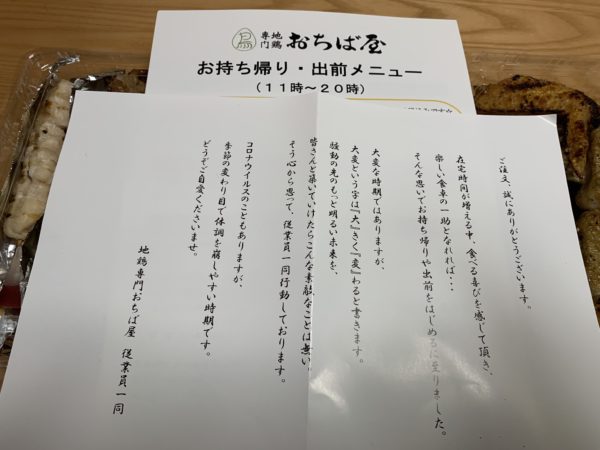 地鶏
専門
おちば屋
お持ち帰り・出前メニュー
（１１時～２０時）
ご注文、誠にありがとうございます。
在宅時間が増える中、食べる喜びを感じて頂き、
楽しい食卓の一助となれれば・・・
そんな思いでお持ち帰りや出前をはじめるに至りました。
大変な時期ではありますが、
大変という字は『大』きく『変』わると書きます。
騒動の先のもっと明るい未来を、
皆さんと築いていけたらこんな素敵なことは無い。
そう心から思って、従業員一同行動しております。
コロナウイルスのこともありますが、
季節の変わり目で体調を崩しやすい時期です。
どうぞご自愛くださいませ。
地鶏専門おちば屋　従業員一同